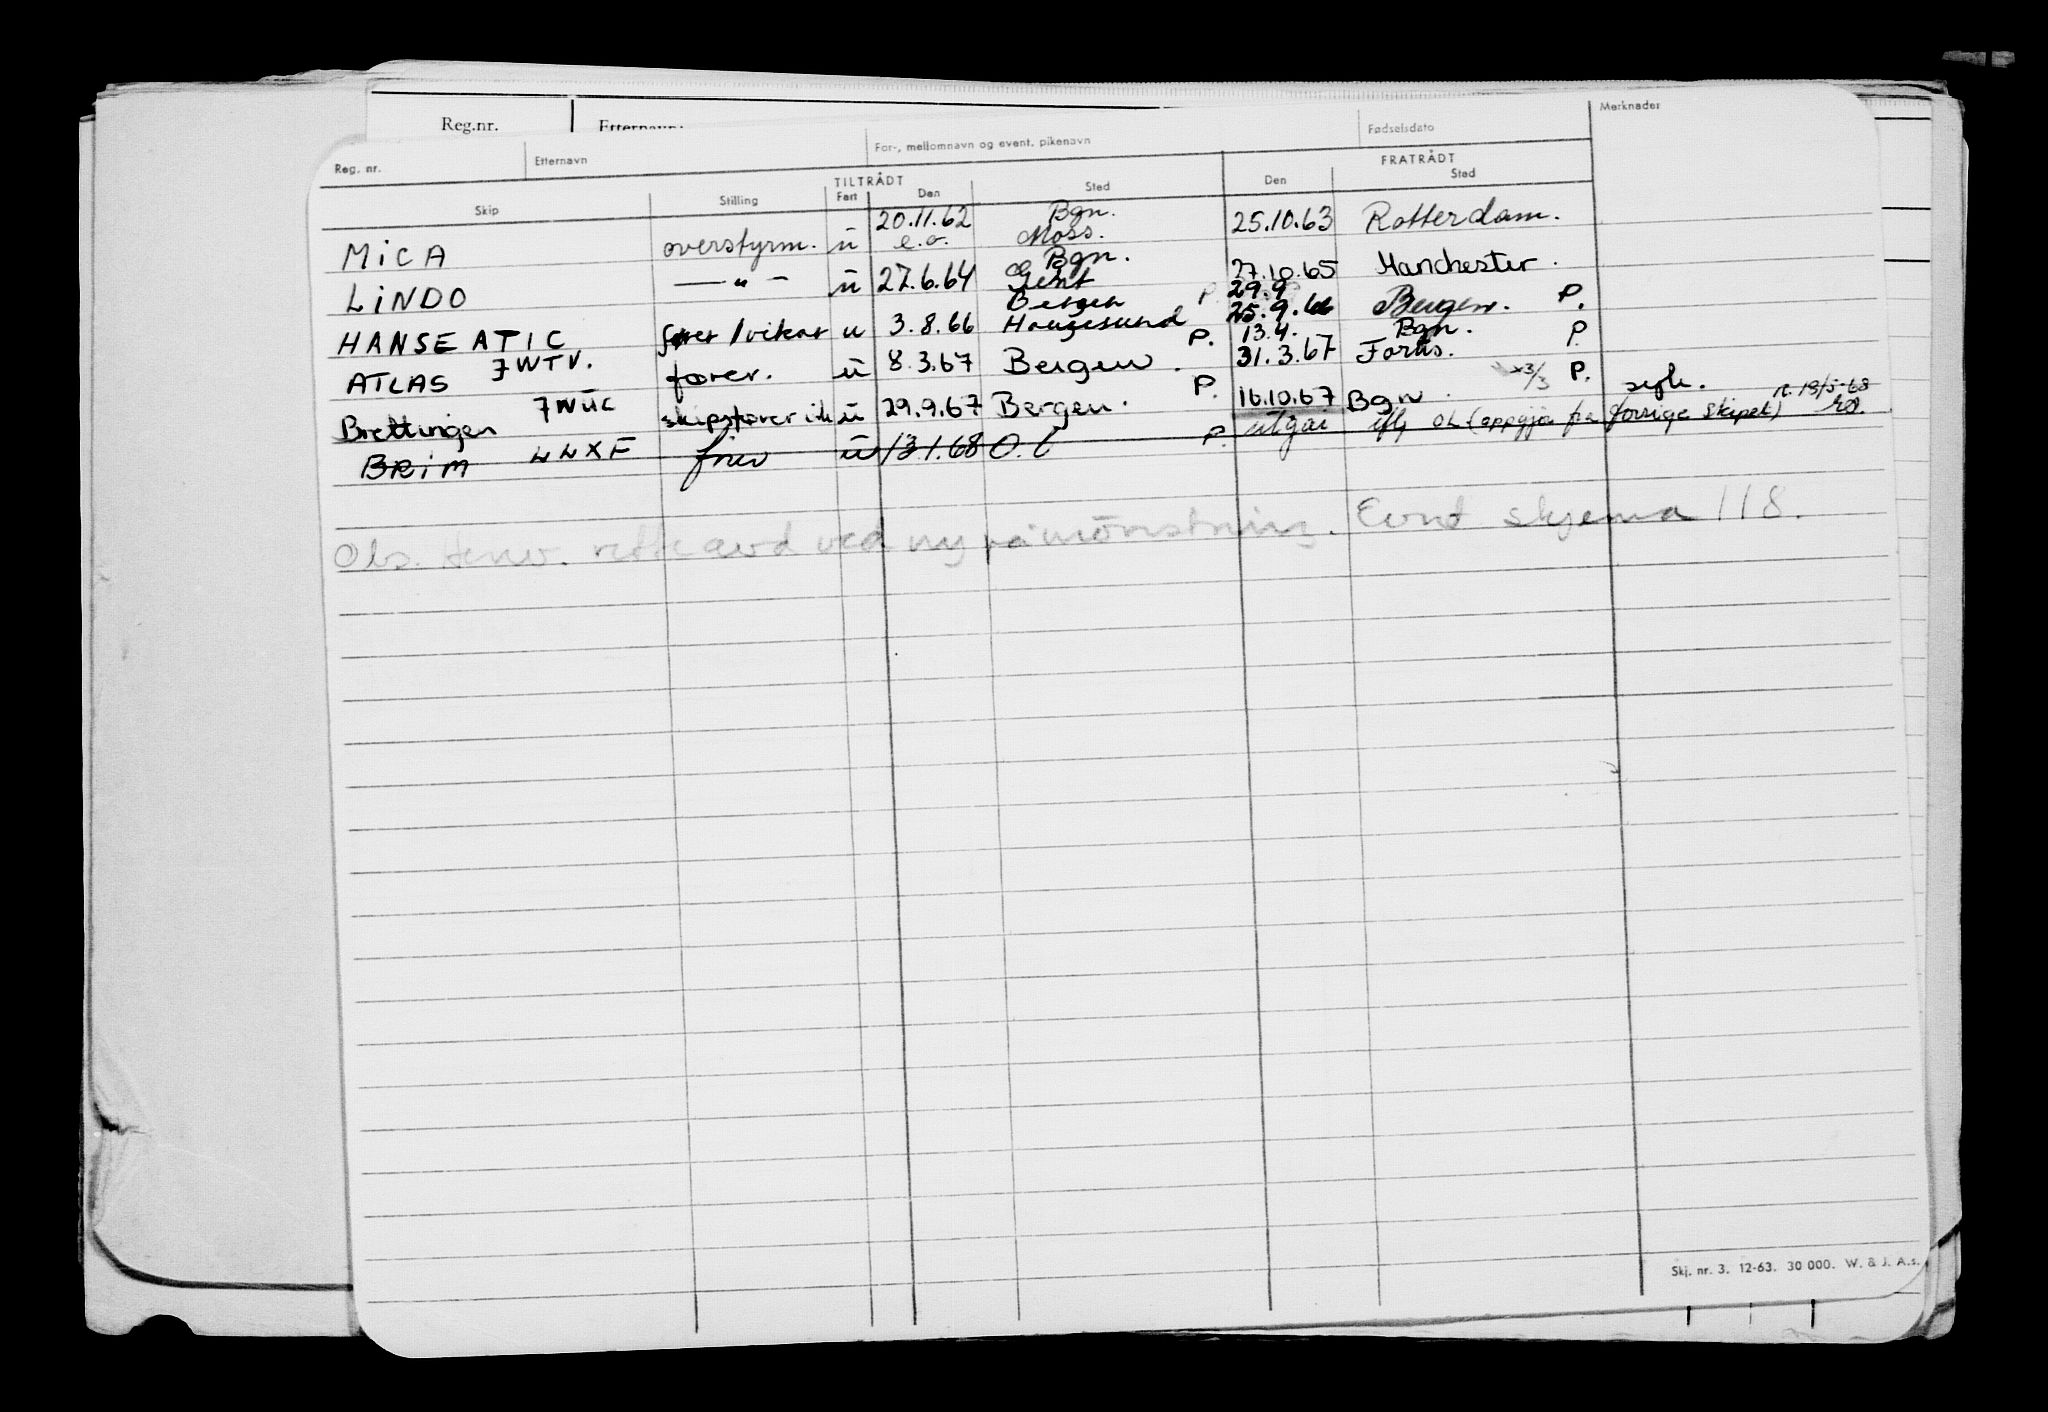 Reg.nr. Etternavn:
Reg. nr. Etternavn For-, mellomnavn og event. pikenavn Fødselsdato Merknader
TILTRÅDT FRATRÅDT
Skip Stilling Fart Den Sted Den Sted
20.11.62 Bgn.
MiCA overstyrm. u e.o. Moss. 25.10.63 Rotterdam.
Bgn.
LiNDO — " — u 27.6.64 Gent 27.10.65 Manchester.
Bergen P. 29.9 P.
HANSEATIC fører/vikar u 3.8.66 Haugesund 25.9.66 Bergen. P.
P. 13.4. Bgn. P.
ATLAS JWTV. fører. u 8.3.67 Bergen. 31.3.67 Forus.
P. x3/3 P. sigh.
Brettingen JWUC skipsfører u 29.9.67 Bergen. 16.10.67 Bgn. 13/5-68
BRiM LLXF fører u 13.1.68 O.l P. utgår iflg OL (oppgjør fra forrige skipet)
Obs. Henv. rette avd ved ny påmönstring. Evnt skjema 118.
Skj. nr. 3. 12-63. 30 000. W. & J. A.s.